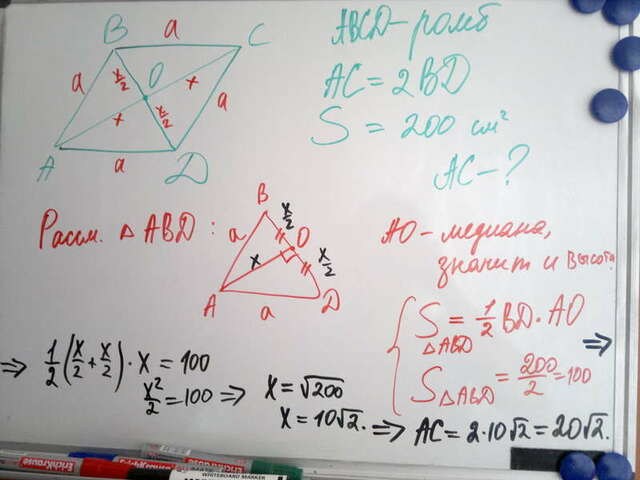 ABCD - ромб
AC = 2BD
S = 200 см²
AC - ?
B a C
a x/2 O x a
x x/2
A a D
Рассм. △ABD:
B
a x/2 O
x x/2
A a D
AO - медиана,
значит и высота.
S△ABD = 1/2 BD · AO
S△ABD = 200/2 = 100
⇒
⇒ 1/2 (x/2 + x/2) · x = 100
x²/2 = 100 ⇒ x = √200
x = 10√2. ⇒ AC = 2·10√2 = 20√2.
ErichKrause
ErichKrause
WHITEBOARD MARKER